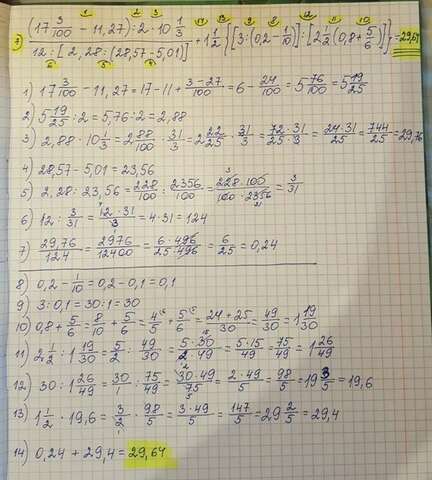 1 2 3 11 13 9 8 12 11 10
7) (17 3/100 − 11,27) : 2 · 10 1/3 / 12 : [2,28 : (28,57 − 5,01)] + 1 1/2 {[3 : (0,2 − 1/10)] : [2 1/2 : (0,8 + 5/6)]} = 29,64
6 5 4
1) 17 3/100 − 11,27 = 17 − 11 + (3 − 27)/100 = 6 − 24/100 = 5 76/100 = 5 19/25
2) 5 19/25 : 2 = 5,76 : 2 = 2,88
3) 2,88 · 10 1/3 = 2 88/100 · 31/3 = 2 22/25 · 31/3 = 72 · 31/25 · 3 = 24 · 31/25 = 744/25 = 29,76
4) 28,57 − 5,01 = 23,56
5) 2,28 : 23,56 = 228/100 : 2356/100 = 228 · 100/100 · 2356 = 3/31
6) 12 : 3/31 = 12 · 31/3 = 4 · 31 = 124
7) 29,76/124 = 2976/12400 = 6 · 496/25 · 496 = 6/25 = 0,24
8) 0,2 − 1/10 = 0,2 − 0,1 = 0,1
9) 3 : 0,1 = 30 : 1 = 30
10) 0,8 + 5/6 = 8/10 + 5/6 = 4/5 + 5/6 = (24 + 25)/30 = 49/30 = 1 19/30
11) 2 1/2 : 1 19/30 = 5/2 : 49/30 = 5 · 30/2 · 49 = 5 · 15/49 = 75/49 = 1 26/49
12) 30 : 1 26/49 = 30/1 : 75/49 = 30 · 49/75 = 2 · 49/5 = 98/5 = 19 3/5 = 19,6
13) 1 1/2 · 19,6 = 3/2 · 98/5 = 3 · 49/5 = 147/5 = 29 2/5 = 29,4
14) 0,24 + 29,4 = 29,64